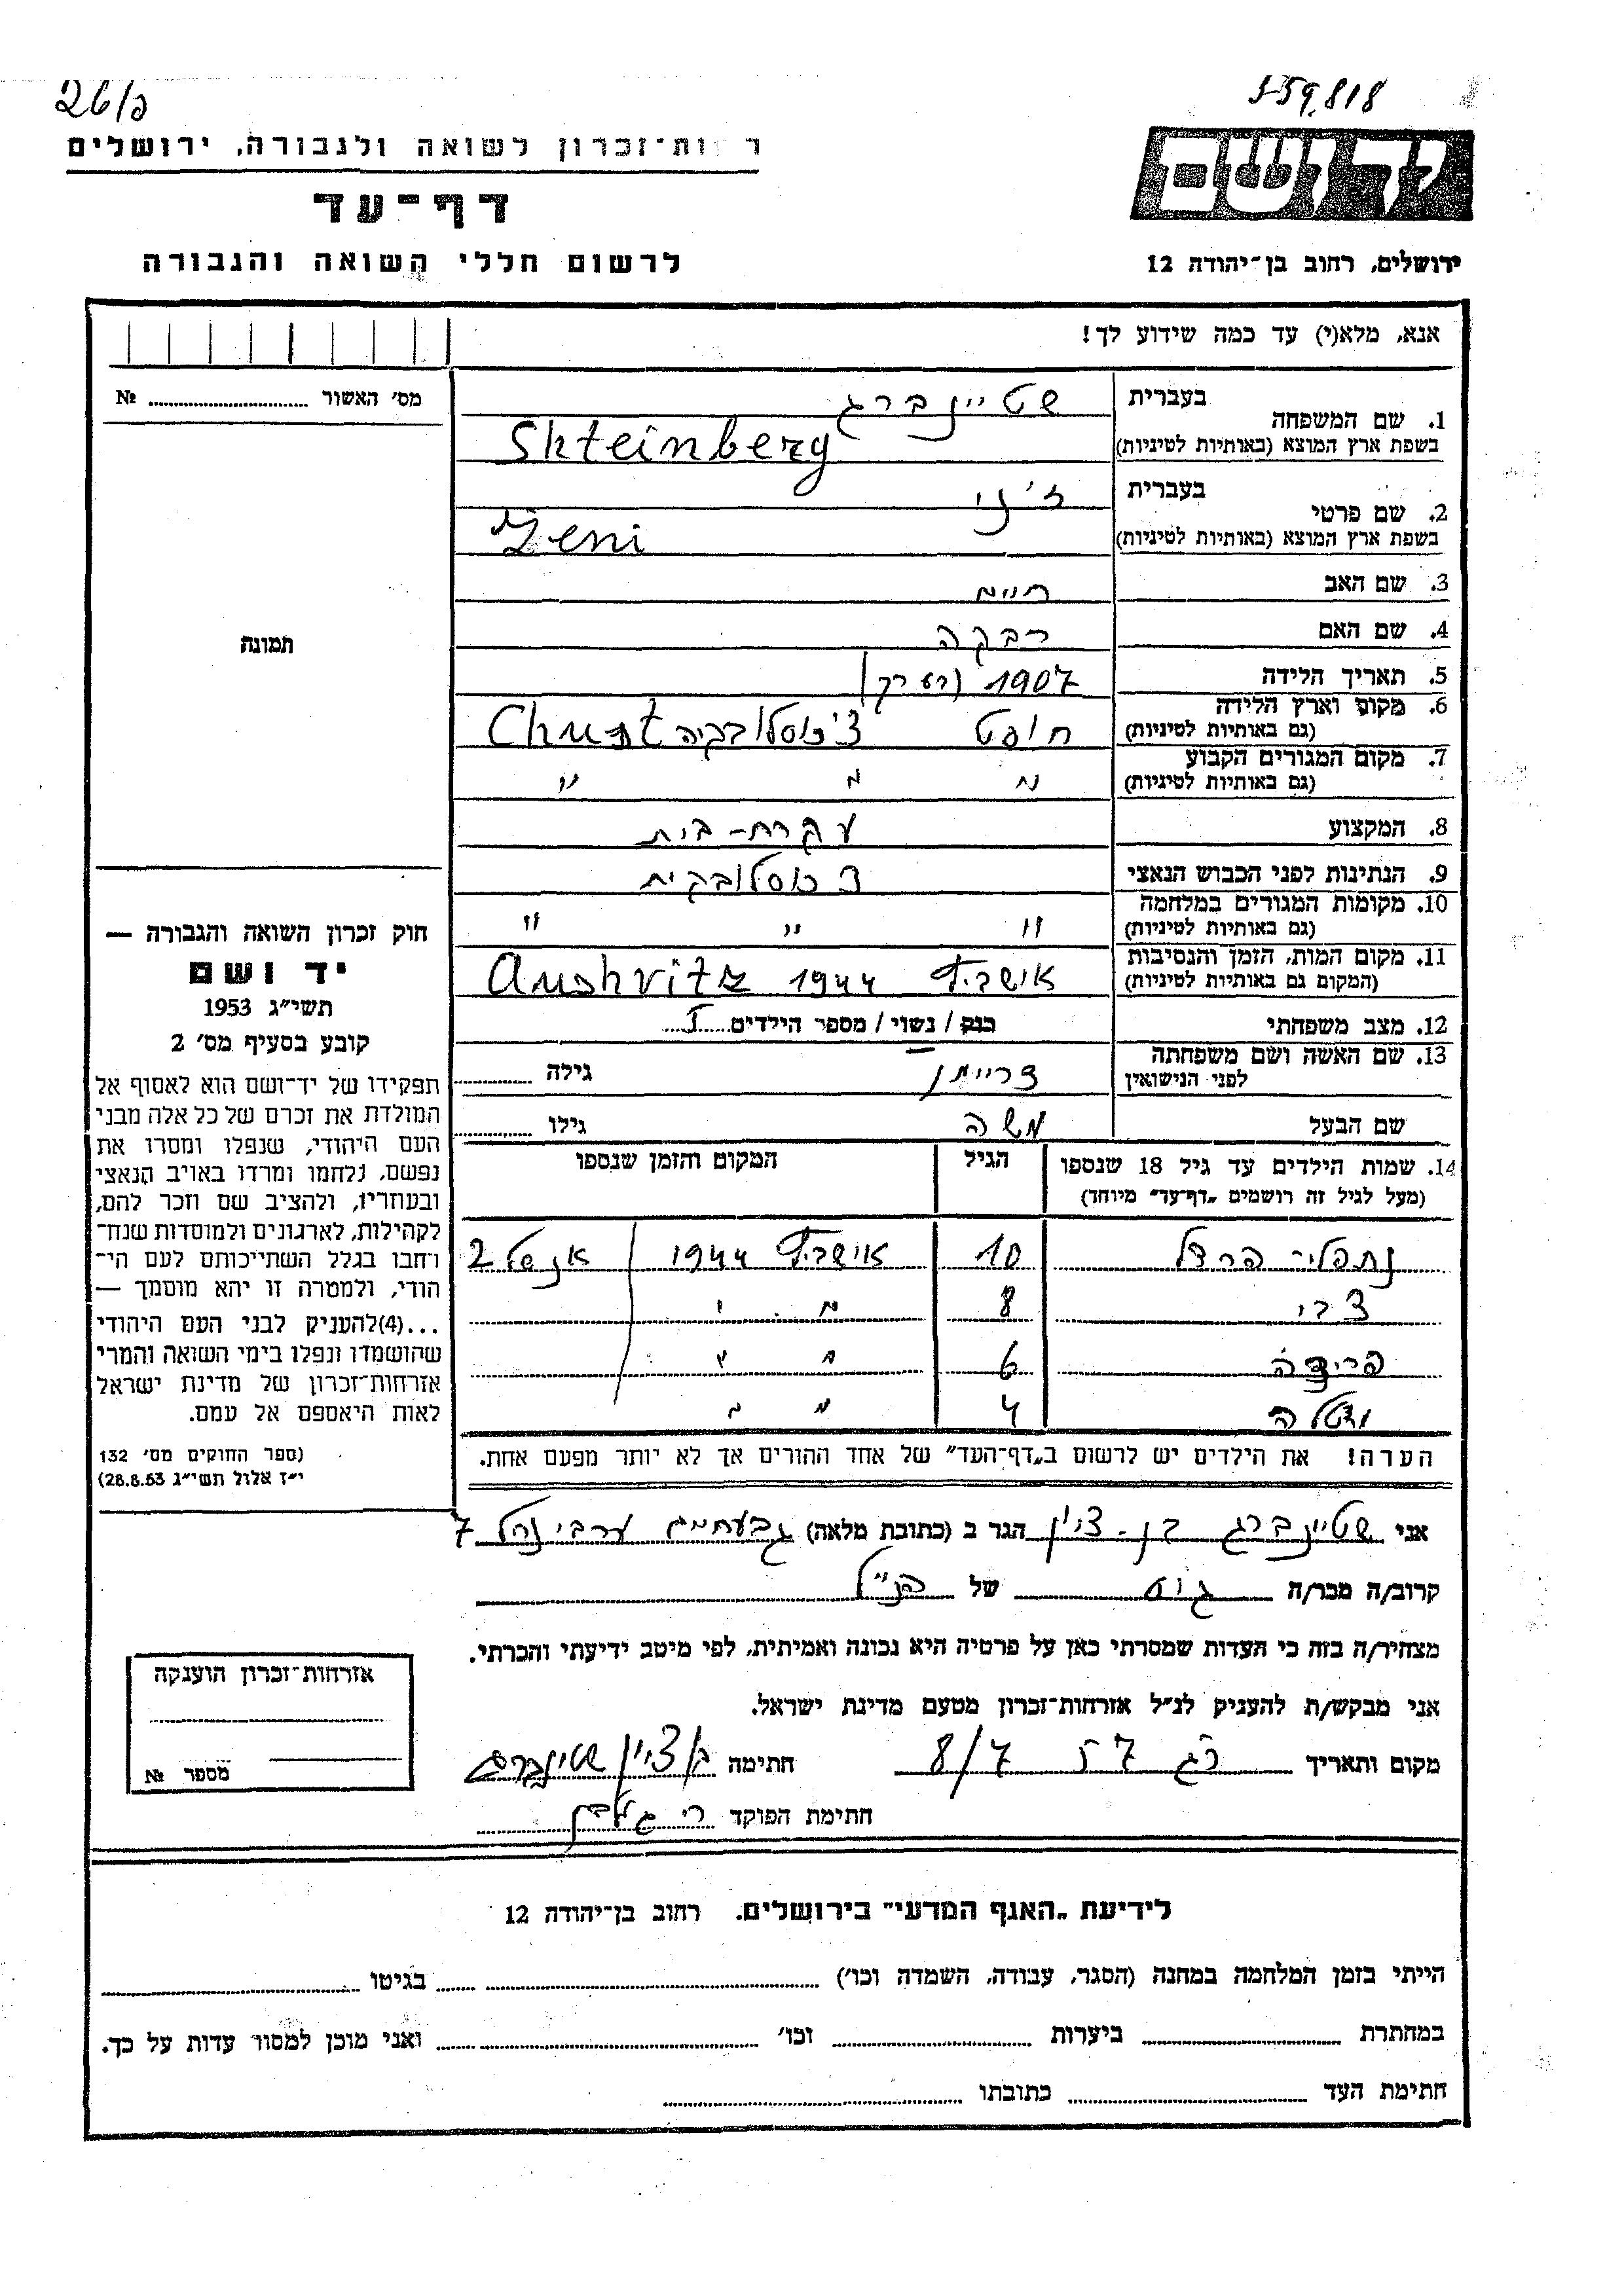 26/כ
559,818
רשות־זכרון לשואה ולגבורה, ירושלים
דף־עד
לרשום חללי השואה והגבורה
יד ושם
ירושלים, רחוב בן־יהודה 12
אנא, מלא(י) עד כמה שידוע לך!
מס׳ האשור № 
תמונה
1. שם המשפחה בעברית שטיינברג
בשפת ארץ המוצא (באותיות לטיניות) Shteinberg
2. שם פרטי בעברית ז׳ני
בשפת ארץ המוצא (באותיות לטיניות) Zeni
3. שם האב חיים
4. שם האם רבקה
5. תאריך הלידה 1907
6. מקום וארץ הלידה (גם באותיות לטיניות) חוסט צ׳כוסלובקיה Chust
7. מקום המגורים הקבוע (גם באותיות לטיניות) " " "
8. המקצוע עקרת-בית
9. הנתינות לפני הכבוש הנאצי צכוסלובקית
10. מקומות המגורים במלחמה (גם באותיות לטיניות) " " "
11. מקום המות, הזמן והנסיבות (המקום גם באותיות לטיניות) אושביץ 1944 Aushvitz
12. מצב משפחתי רוק / נשוי / מספר הילדים
13. שם האשה ושם משפחתה לפני הנישואין גילה
שם הבעל משה גילו
14. שמות הילדים עד גיל 18 שנספו (מעל לגיל זה רושמים „דף־עד״ מיוחד) הגיל המקום והזמן שנספו
נפתלי הרצל 10 אושביץ 1944
צבי 8 " "
פרידה 6 " "
4 " "
הערה! את הילדים יש לרשום ב„דף־העד״ של אחד ההורים אך לא יותר מפעם אחת.
חוק זכרון השואה והגבורה —
יד ושם
תשי״ג 1953
קובע בסעיף מס׳ 2
תפקידו של יד־ושם הוא לאסוף אל
המולדת את זכרם של כל אלה מבני
העם היהודי, שנפלו ומסרו את
נפשם, נלחמו ומרדו באויב הנאצי
ובעוזריו, ולהציב שם וזכר להם,
לקהילות, לארגונים ולמוסדות שנח־
רחבו בגלל השתייכותם לעם הי־
הודי, ולמטרה זו יהא מוסמך —
...(4)להעניק לבני העם היהודי
שהושמדו ונפלו בימי השואה והמרי
אזרחות־זכרון של מדינת ישראל
לאות היאספם אל עמם.
(ספר החוקים מס׳ 132
י״ז אלול תשי״ג 28.8.53)
אני שטיינברג בן-ציון הגר ב (כתובת מלאה) גבעתיים ערבי נחל 7
קרוב/ה מכר/ה גיס של הנ״ל
מצהיר/ה בזה כי העדות שמסרתי כאן על פרטיה היא נכונה ואמיתית, לפי מיטב ידיעתי והכרתי.
אני מבקש/ת להעניק לנ״ל אזרחות־זכרון מטעם מדינת ישראל.
מקום ותאריך רג 57 8/7 חתימה בן ציון שטינברג
חתימת הפוקד
אזרחות־זכרון הוענקה
מספר №
לידיעת „האגף המדעי״ בירושלים. רחוב בן־יהודה 12
הייתי בזמן המלחמה במחנה (הסגר, עבודה, השמדה וכו׳) בגיטו
במחתרת ביערות וכו׳ ואני מוכן למסור עדות על כך.
חתימת העד כתובתו